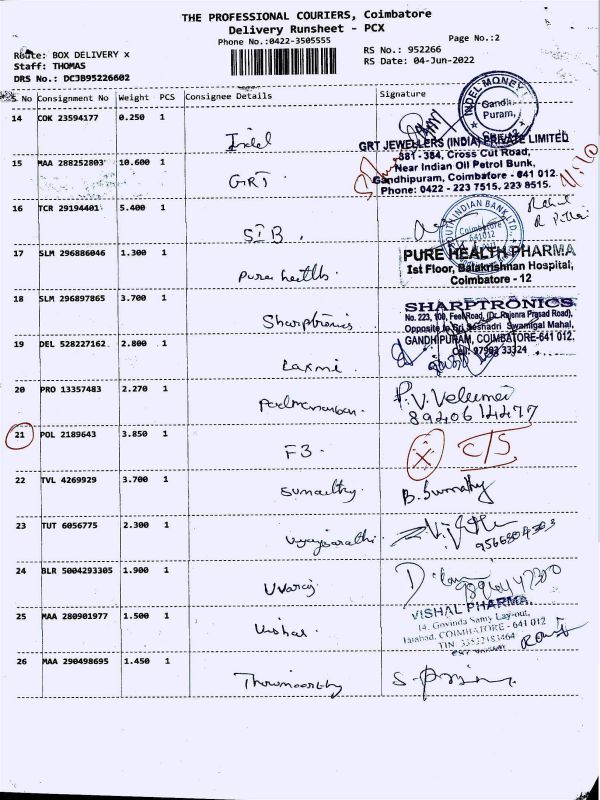 THE PROFESSIONAL COURIERS, Coimbatore
Delivery Runsheet - PCX
Phone No.:0422-3505555
Page No.:2
Route: BOX DELIVERY x
Staff: THOMAS
DRS No.: DCJB95226602
RS No.: 952266
RS Date: 04-Jun-2022
S No Consignment No Weight PCS Consignee Details Signature
14 COK 23594177 0.250 1 Indel
INDEL MONEY
Gandhi
Puram,
15 MAA 288252803 10.600 1 GRT
GRT JEWELLERS (INDIA) PRIVATE LIMITED
381 - 384, Cross Cut Road,
Near Indian Oil Petrol Bunk,
Gandhipuram, Coimbatore - 641 012.
Phone: 0422 - 223 7515, 223 8515.
16 TCR 29194401 5.400 1 SIB.
SOUTH INDIAN BANK LTD.
Coimbatore
641012
17 SLM 296886046 1.300 1 Pure health.
PURE HEALTH PHARMA
1st Floor, Balakrishnan Hospital,
Coimbatore - 12
18 SLM 296897865 3.700 1 Sharptronics
SHARPTRONICS
No. 223, 100, Feet Road, (Dr. Rajenra Prasad Road),
Opposite to Sri Seshadri Swamigal Mahal,
GANDHIPURAM, COIMBATORE-641 012.
Cell: 97903 33324
19 DEL 528227162 2.800 1 Laxmi.
20 PRO 13357483 2.270 1
P.V. Velumai
8940614477
21 POL 2189643 3.850 1 F3. X C/S
22 TVL 4269929 3.700 1 Sumathy. B. Sumathy
23 TUT 6056775 2.300 1 Vijaysarathi.
24 BLR 5004293305 1.900 1 Uvaraj
25 MAA 280901977 1.500 1 Vishal.
VISHAL PHARMA,
14, Govinda Samy Lay-out,
COIMBATORE - 641 012
TIN 33532483464
26 MAA 290498695 1.450 1 Thirumoorthy